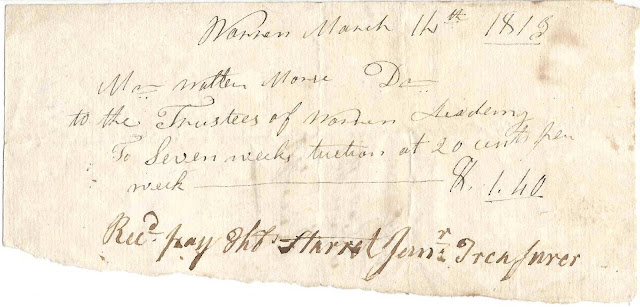 Warren March 14th 1813
Mr Walter Morse Dr
to the Trustees of Warren Academy
To Seven weeks tuition at 20 cents per
week — $. 1.40
Recd pay Thos Starret Junr Treasurer